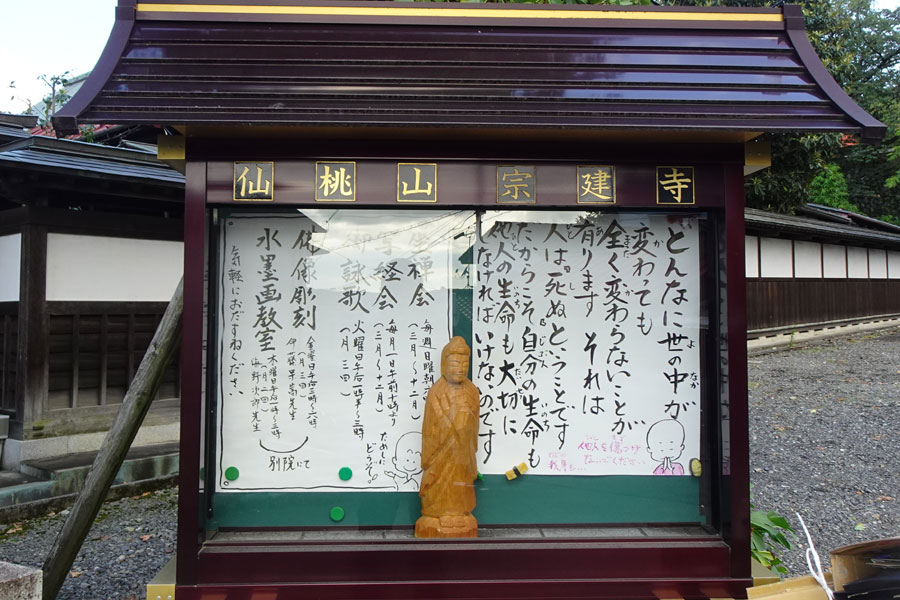 仙桃山宗建寺
どんなに世の中が
変わっても
全く変わらないことが
有ります それは
人は死ぬということです
だからこそ自分の生命も
他人の生命も大切に
しなければいけないのです
他人を傷つけ
ないでください
坐禅会
毎週日曜朝
(三月〜十二月)
写経会
毎月一日午前十時より
(三月〜十二月)
御詠歌
火曜日午后一時半〜三時
(月二回)
ためしに
どうぞ。
仏像彫刻
金曜日午后三時〜六時
(月三回)
先生
水墨画教室
木曜日午后一時〜三時
(月二回)
先生
別院にて
気軽におたずねください